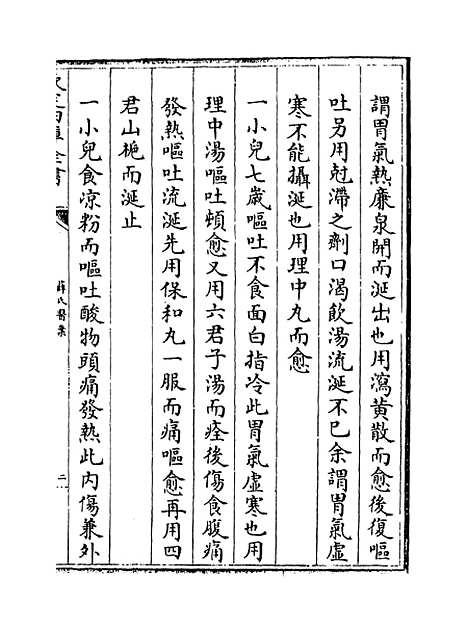 謂胃氣熱廉泉開而涎出也用瀉黄散而愈後復嘔
吐另用尅滯之劑口渴飲湯流涎不已余謂胃氣虛
寒不能攝涎也用理中丸而愈
一小兒七歲嘔吐不食面白指冷此胃氣虛寒也用
理中湯嘔吐頓愈又用六君子湯而痊後傷食腹痛
發熱嘔吐流涎先用保和丸一服而痛嘔愈再用四
君山梔而涎止
一小兒食凉粉而嘔吐酸物頭痛發熱此内傷兼外
欽定四庫全書
薛氏醫案